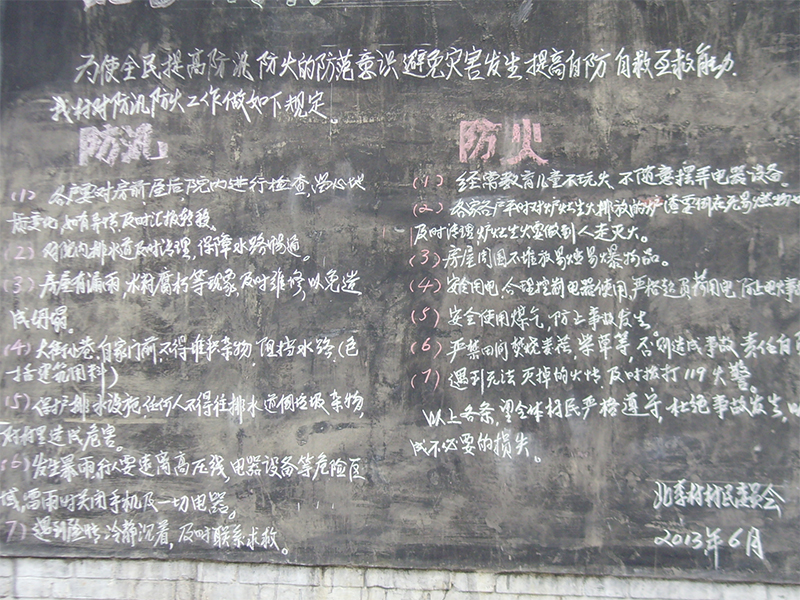 为使全民提高防汛防火的防范意识避免灾害发生提高自防自救互救能力.
我村对防汛防火工作做如下规定。
防汛
(1) 各户要对房前屋后院内进行检查,当心地
质变化,如有异情,及时汇报转移。
(2) 对院内排水道及时清理,保障水路畅通。
(3) 房屋有漏雨,木料腐朽等现象及时维修以免造
成倒塌。
(4) 大街小巷、自家门前不得堆积杂物,阻挡水路,(包
括建筑用料)
(5) 保护排水设施任何人不得往排水道倒垃圾杂物,
造成危害。
(6) 发生暴雨,行人要远离高压线,电器设备等危险区
域,雷雨时关闭手机及一切电器。
7) 遇到险情,冷静沉着,及时联系求救。
防火
(1) 经常教育儿童不玩火、不随意摆弄电器设备。
(2) 各家各户平时对炉灶生火排放的炉渣要倒在无易燃物
及时清理炉灶生火要做到人走灭火。
(3) 房屋周围不堆放易燃易爆物品。
(4) 安全用电,合理控制电器使用,严格超负荷用电,防止电火事
(5) 安全使用煤气,防止事故发生。
(6) 严禁田间焚烧麦茬,柴草等,否则造成事故责任自
(7) 遇到无法灭掉的火情及时拨打119火警。
以上各条,望全体村民严格遵守,杜绝事故发生,以
成不必要的损失。
北李村村民委员会
2013年6月